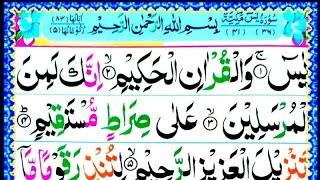 سورة يس مكية (٣٦) (٤١) بسم الله الرحمن الرحيم اياتها (٨٣) ركوعاتها (٥)
يس ۝١ وَالْقُرْاٰنِ الْحَكِيْمِ ۝٢ اِنَّكَ لَمِنَ
الْمُرْسَلِيْنَ ۝٣ عَلٰى صِرَاطٍ مُّسْتَقِيْمٍ ۝٤
تَنْزِيْلَ الْعَزِيْزِ الرَّحِيْمِ ۝٥ لِتُنْذِرَ قَوْمًا مَّآ